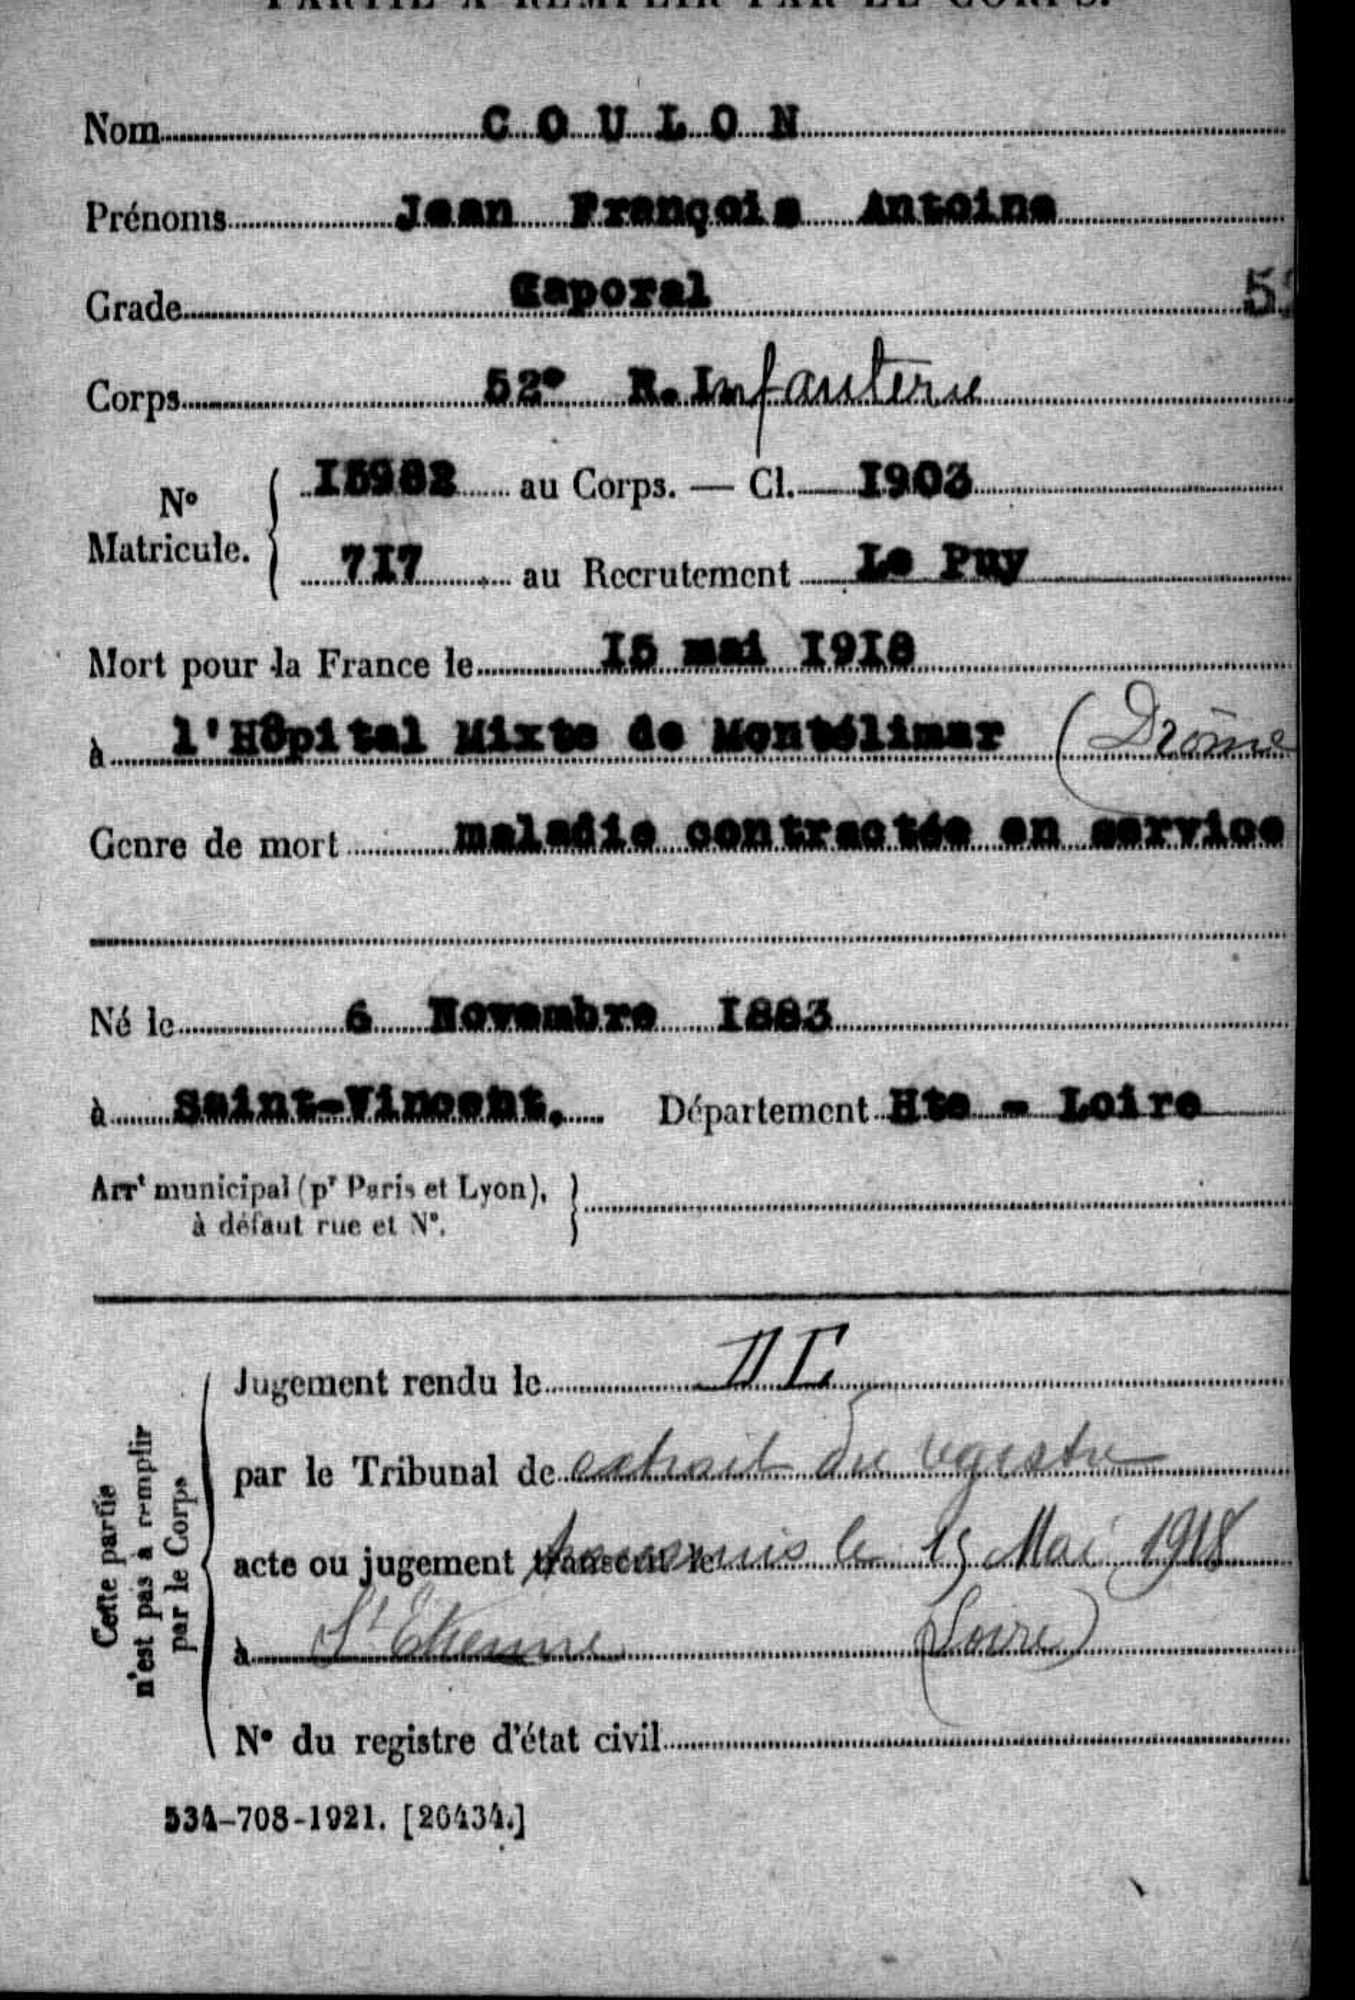 PARTIE A REMPLIR PAR LE CORPS.
Nom COULON
Prénoms Jean François Antoine
Grade Caporal 52
Corps 52e R. Infanterie
N° Matricule. { I5982 au Corps. — Cl. I903
7I7 au Recrutement Le Puy
Mort pour la France le I5 mai I9I8
à l'Hôpital Mixte de Montélimar (Drôme
Genre de mort maladie contractée en service
Né le 6 Novembre I883
à Saint-Vincent. Département Hte - Loire
Arrt municipal (pr Paris et Lyon), }
à défaut rue et N°.
Cette partie
n'est pas à remplir
par le Corps
Jugement rendu le
par le Tribunal de extrait du registre
acte ou jugement transcrit le transmis le 15 Mai 1918
à St Etienne (Loire)
N° du registre d'état civil
534-708-1921. [26434.]